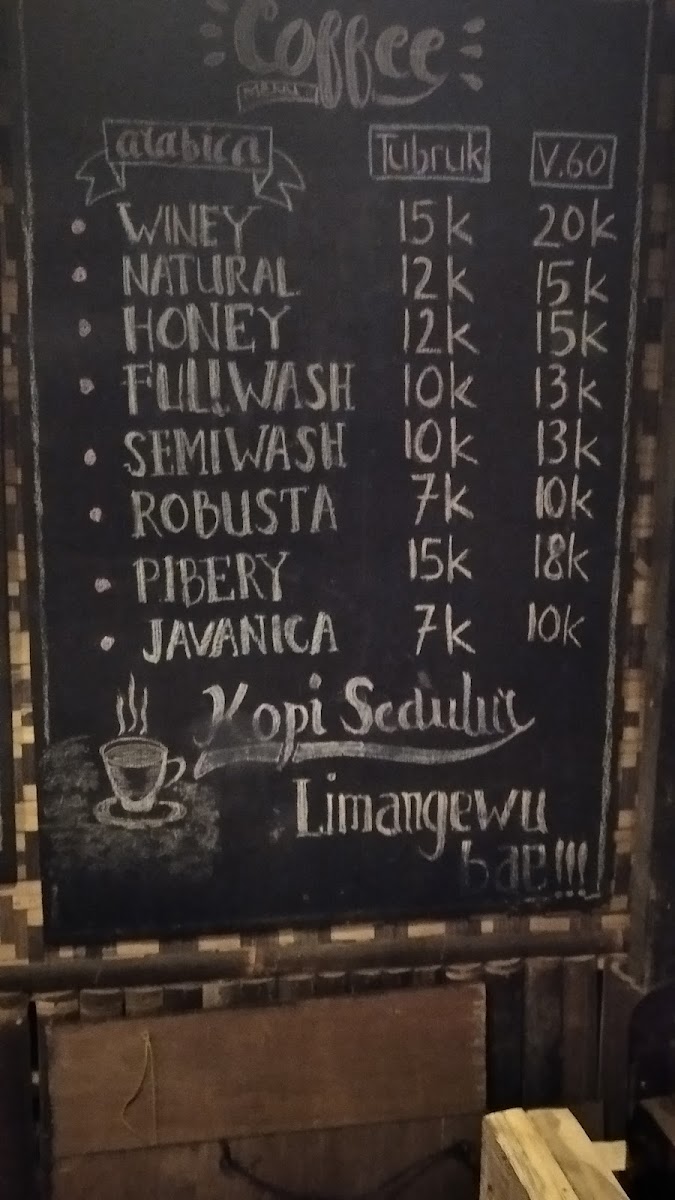 Coffee
MENU
arabica Tubruk V.60
• WINEY 15k 20k
• NATURAL 12k 15k
• HONEY 12k 15k
• FULLWASH 10k 13k
• SEMIWASH 10k 13k
• ROBUSTA 7k 10k
• PIBERY 15k 18k
• JAVANICA 7k 10k
Kopi Sedulur
Limangewu
bae!!!